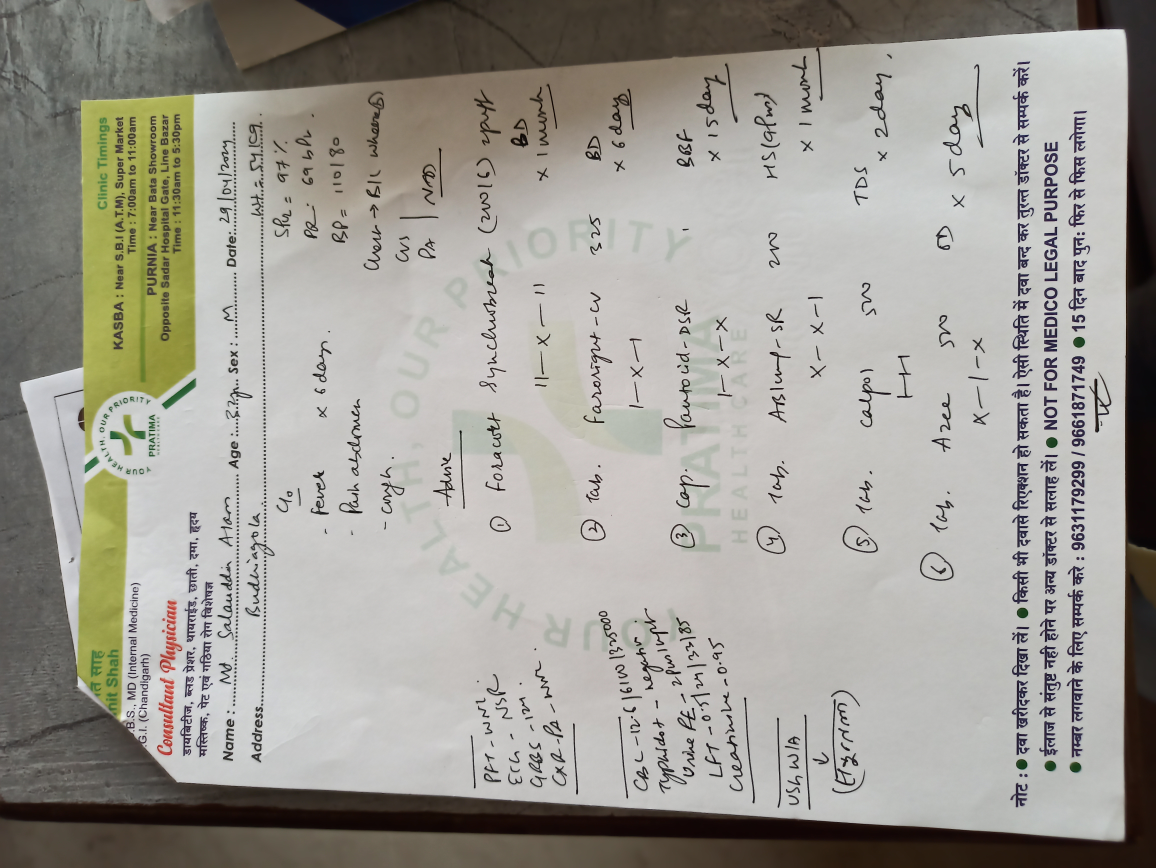 त साह
nit Shah
.B.S., MD (Internal Medicine)
.G.I. (Chandigarh)
Consultant Physician
डायबिटीज, ब्लड प्रेशर, थायराईड, छाती, दमा, हृदय
मस्तिष्क, पेट एवं गठिया रोग विशेषज्ञ
YOUR HEALTH, OUR PRIORITY
PRATIMA
HEALTHCARE
Clinic Timings
KASBA : Near S.B.I (A.T.M), Super Market
Time : 7:00am to 11:00am
PURNIA : Near Bata Showroom
Opposite Sadar Hospital Gate, Line Bazar
Time : 11:30am to 5:30pm
Name : Md. Salauddin Alam Age : Sex : M Date: 29/04/2024
Address Budhiagola Wt = 54.1 kg
SPO2 = 97%
PR = 69 bPr.
BP = 110/80
Chest → B/L wheeze
CVS
PA | NAD
C/o
- Fever x 6 days.
- Pain abdomen
- cough.
Advise
PFT - WNL
ECG - NSR
GRBS - 121.
CXR-PA - WNL.
CBC - 12.6/6100/325000
Typhidot - negative
Urine RE -
LFT - 0.5/24/32/85
Creatinine - 0.95
USG W/A
① Foracort Synchrobreath (200/6) 2puff BD
11 — x — 11 x 1 month
② Tab. Faronight-CV 325 BD
1 - x - 1 x 6 days
③ Cap. Pantocid-DSR 1 BBF
1 — x — x x 15 days
④ Tab. AB Flup-SR 200 HS (9pm)
x - x - 1 x 1 month
⑤ Tab. Calpol 500 TDS
1-1-1 x 2 day.
⑥ Tab. Azee 500 OD x 5 day
x - 1 - x
YOUR HEALTH, OUR PRIORITY
PRATIMA
HEALTHCARE
नोट : ● दवा खरीदकर दिखा लें। ● किसी भी दवासे रिएक्शन हो सकता है। ऐसी स्थिति में दवा बन्द कर तुरन्त डॉक्टर से सम्पर्क करें।
● ईलाज से संतुष्ट नहीं होने पर अन्य डॉक्टर से सलाह लें। ● NOT FOR MEDICO LEGAL PURPOSE
● नम्बर लगवाने के लिए सम्पर्क करे : 9631179299 / 9661871749 ● 15 दिन बाद पुन: फिर से फिस लगेगा।